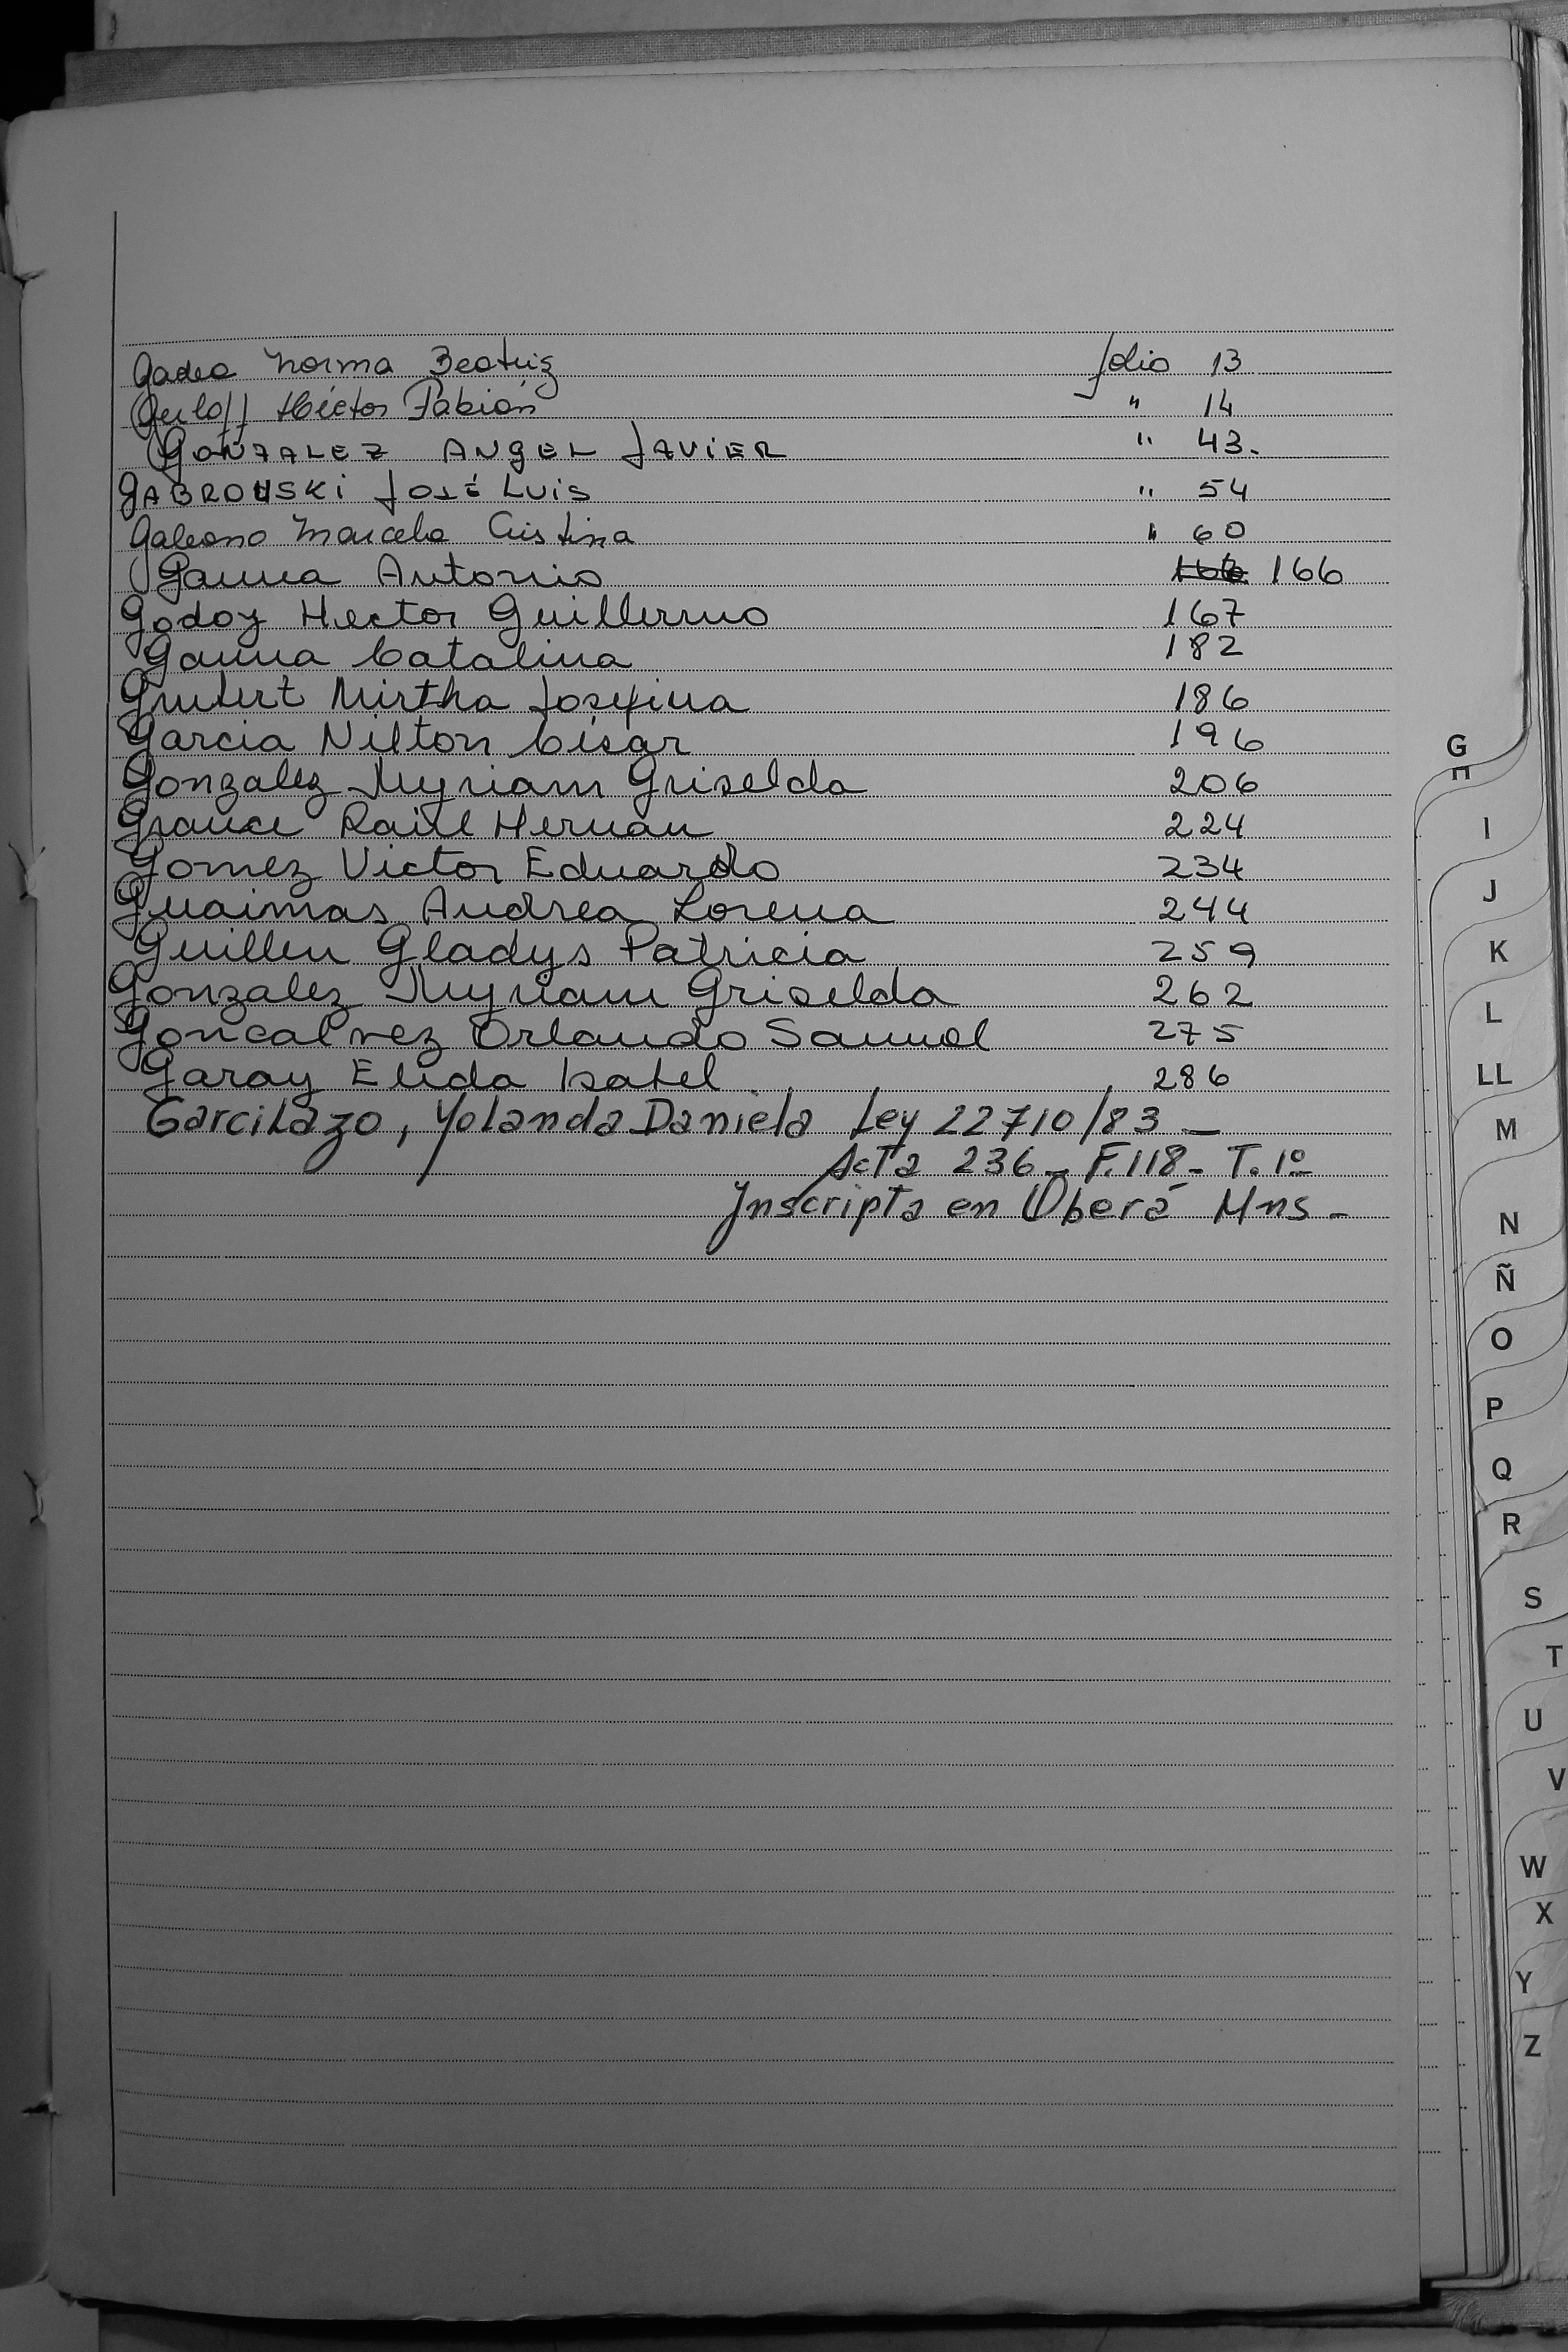 Gadea Norma Beatriz folio 13
Gerloff Héctor Fabián " 14
GONZALEZ ANGEL JAVIER " 43.
GABROWSKI JOSÉ LUIS " 54
Galeano Marcela Cristina " 60
Gauna Antonio 166 166
Godoy Hector Guillermo 167
Gauna Catalina 182
Mirtha Josefina 186
Garcia Nilton César 196
Gonzalez Myriam Griselda 206
Raúl Hernan 224
Gomez Victor Eduardo 234
Guaimas Andrea Lorena 244
Guillen Gladys Patricia 259
Gonzalez Myriam Griselda 262
Goncalvez Orlando Samuel 275
Garay Elida Isabel 286
Garcilazo, Yolanda Daniela Ley 22710/83 -
Acta 236 - F. 118 - T. 1º
Inscripta en Oberá Mns -
G
H
I
J
K
L
LL
M
N
Ñ
O
P
Q
R
S
T
U
V
W
X
Y
Z